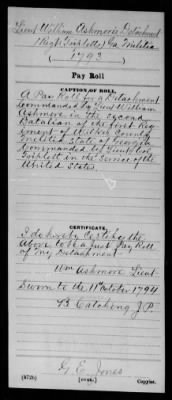 Lieut William Ashmore's Detachment
1 Reg't (Triplett's) Ga. Militia
(1793)
Pay Roll
CAPTION OF ROLL.
A Pay Roll for a Detachment
commanded by Lieut William
Ashmore in the Second
Batalian of the first Reg-
iment of Wilkes County
Melitia State of Georgia
Commanded by
Triplett in the Service of the
United States
CERTIFICATE.
I do hereby Certify the
above to be a Just Pay Roll
of my Detachment
Wm Ashmore Lieut.
Sworn to the 11 October 1794
B Catching J.P.
G. E. Jones
(572b)
Copyist.